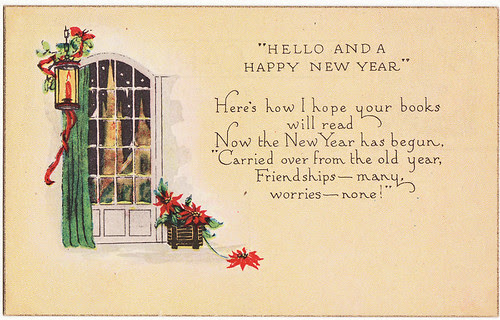 "HELLO AND A
HAPPY NEW YEAR"
Here's how I hope your books
will read
Now the New Year has begun,
"Carried over from the old year,
Friendships—many,
worries—none!"